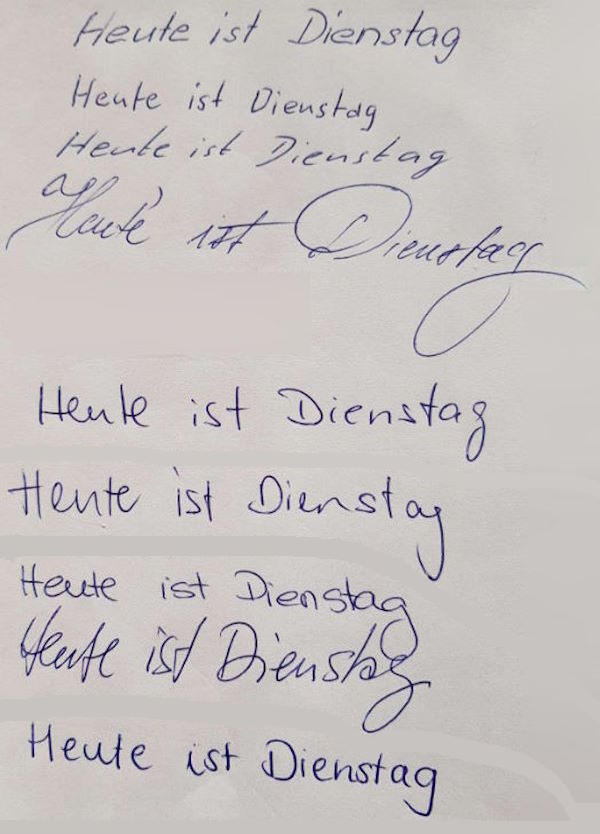 Heute ist Dienstag
Heute ist Dienstag
Heute ist Dienstag
Heute ist Dienstag
Heute ist Dienstag
Heute ist Dienstag
Heute ist Dienstag
Heute ist Dienstag
Heute ist Dienstag